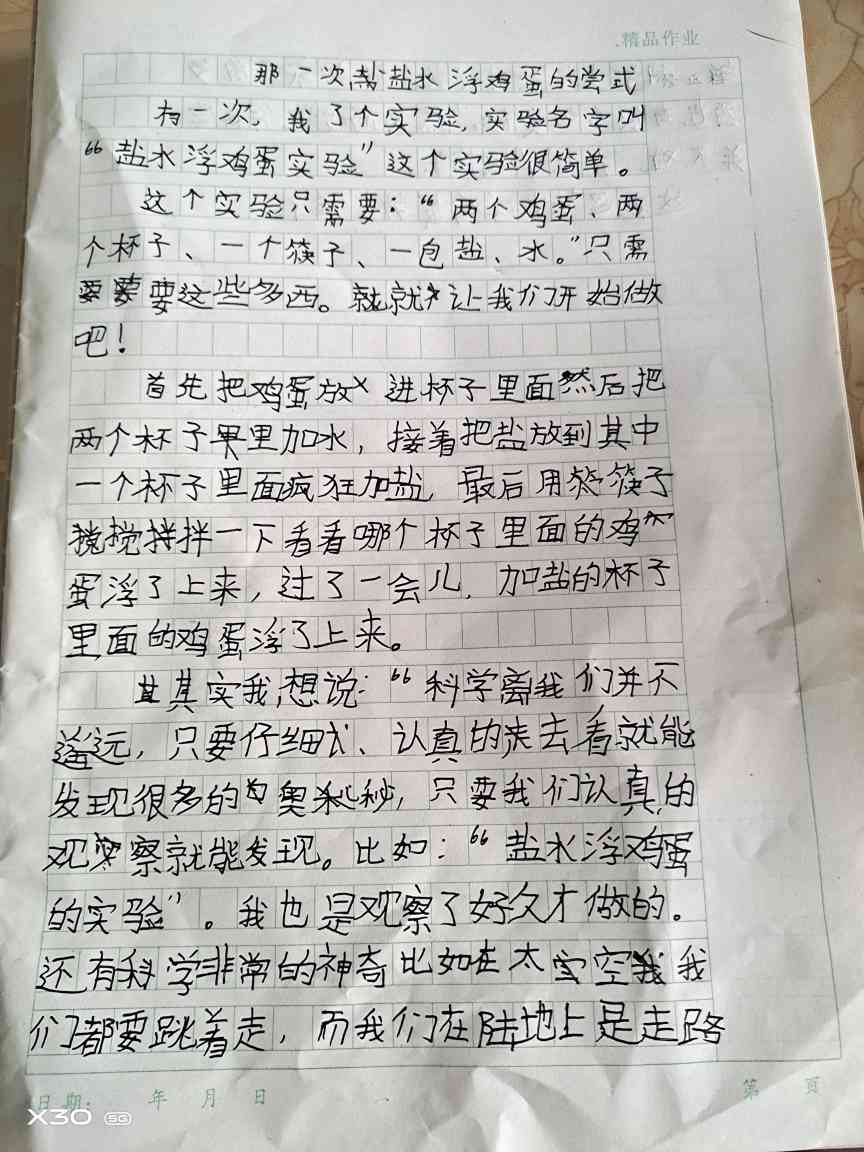 精品作业
那一次盐水浮鸡蛋的尝式
有一次，我了个实验，实验名字叫
“盐水浮鸡蛋实验”这个实验很简单。
这个实验只需要：“两个鸡蛋、两
个杯子、一个筷子、一包盐、水。”只需
要这些多西。就让我们开始做
吧！
首先把鸡蛋放进杯子里面然后把
两个杯子里加水，接着把盐放到其中
一个杯子里面疯狂加盐，最后用筷子
搅拌一下看看哪个杯子里面的鸡
蛋浮了上来，过了一会儿，加盐的杯子
里面的鸡蛋浮了上来。
其实我想说：“科学离我们并不
遥远，只要仔细、认真的去看就能
发现很多的奥秘，只要我们认真的
观察就能发现。比如：“盐水浮鸡蛋
的实验”。我也是观察了好久才做的。
还有科学非常的神奇比如在太空我
们都要跳着走，而我们在陆地上是走路
日期： 年 月 日 第 页
X30 5G